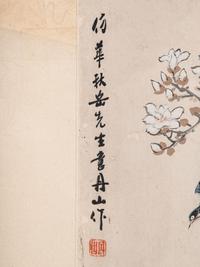 仿華秋岳先生意丹山作